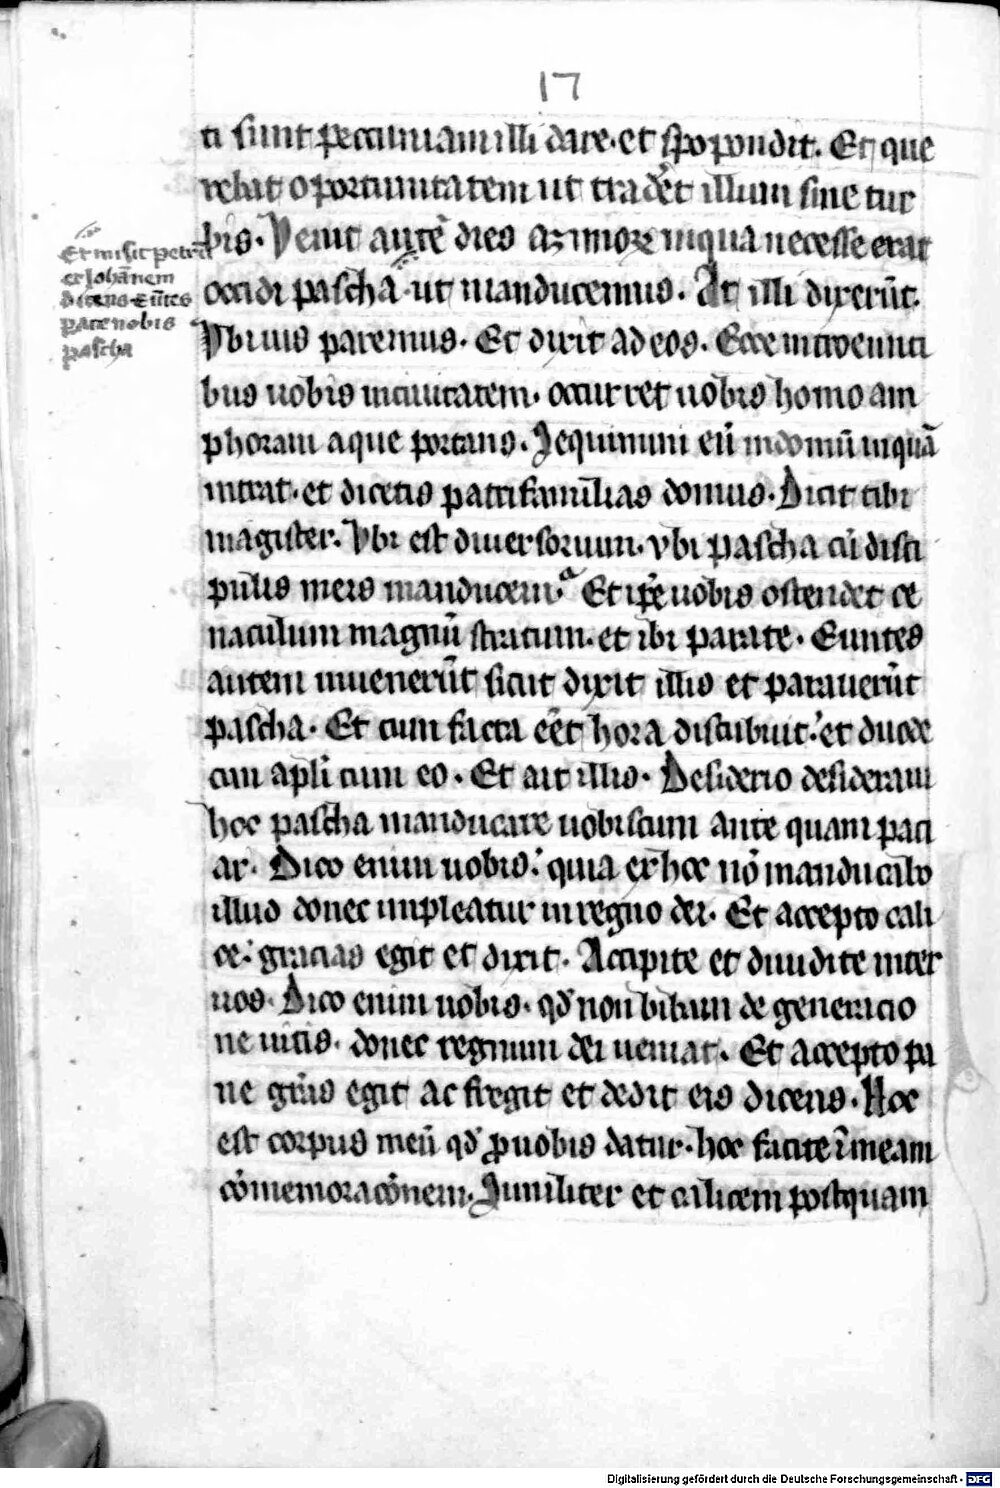 17
ti sunt peccuniam illi dare. et spopondit. Et que
rebat oportunitatem ut trad'et illum sine tur
bis. Venit autē dies azimoꝝ in qua necesse erat
occidi pascha. ut manducemus. At illi dixerūt.
Vbi uis paremus. Et dixit ad eos. Ecce introeunti
bus uobis inciuitatem. occurret uobis homo am
phoram aque portans. Sequimini eū indomū inquā
intrat. et dicetis patrifamilias domus. Dicit tibi
magister. Vbi est diuersorium. vbi pascha cū disci
pulis meis manducem. Et ip̄e uobis ostendet ce
naculum magnū stratum. et ibi parate. Euntes
autem inuenerūt sicut dixit illis et parauerūt
pascha. Et cum facta eēt hora discubuit. et duode
cim apli cum eo. Et ait illis. Desiderio desideraui
hoc pascha manducare uobiscum ante quam pati
ar. Dico enim uobis. quia ex hoc nō manducabo
illud donec impleatur in regno dei. Et accepto cali
ce. gracias egit et dixit. Accipite et diuidite inter
uos. Dico enim uobis. qd̕ non bibam de generacio
ne uitis. donec regnum dei ueniat. Et accepto pa
ne grās egit ac fregit et dedit eis dicens. Hoc
est corpus meū qd̕ ꝓ uobis datur. hoc facite ī meam
cōmemoracōnem. Similiter et calicem postquam
Et misit petrū
et Johānem
dicens Eūtes
parate nobis
pascha
Digitalisierung gefördert durch die Deutsche Forschungsgemeinschaft - DFG